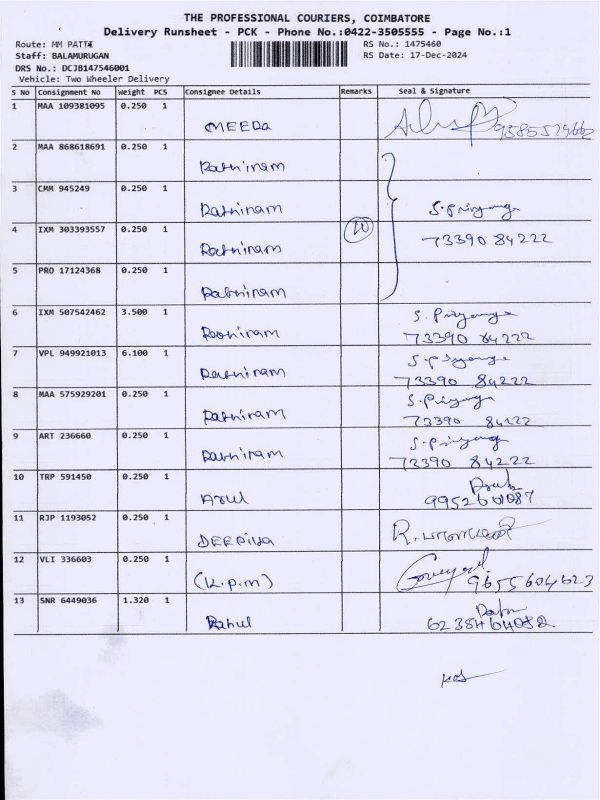 THE PROFESSIONAL COURIERS, COIMBATORE
Delivery Runsheet - PCK - Phone No.:0422-3505555 - Page No.:1
Route: MM PATTI
RS No.: 1475460
Staff: BALAMURUGAN
RS Date: 17-Dec-2024
DRS No.: DCJB147546001
Vehicle: Two Wheeler Delivery
S No Consignment No Weight PCS Consignee Details Remarks Seal & Signature
1 MAA 109381095 0.250 1 MEEDA
2 MAA 868618691 0.250 1 Rathinam
3 CMM 945249 0.250 1 Rathinam S.Priyanga
4 IXM 303393557 0.250 1 Rathinam 73390 84222
5 PRO 17124368 0.250 1 Rathinam
6 IXM 507542462 3.500 1 Rathinam S.Priyanga
73390 84222
7 VPL 949921013 6.100 1 Rathinam S.Priyanga
73390 84222
8 MAA 575929201 0.250 1 Rathinam S.Priyanga
73390 84222
9 ART 236660 0.250 1 Rathinam S.Priyanga
73390 84222
10 TRP 591450 0.250 1 Arul
11 RJP 1193052 0.250 1 DEEPIKA
12 VLI 336603 0.250 1 (K.P.M) 9655604623
13 SNR 6449036 1.320 1 Rahul